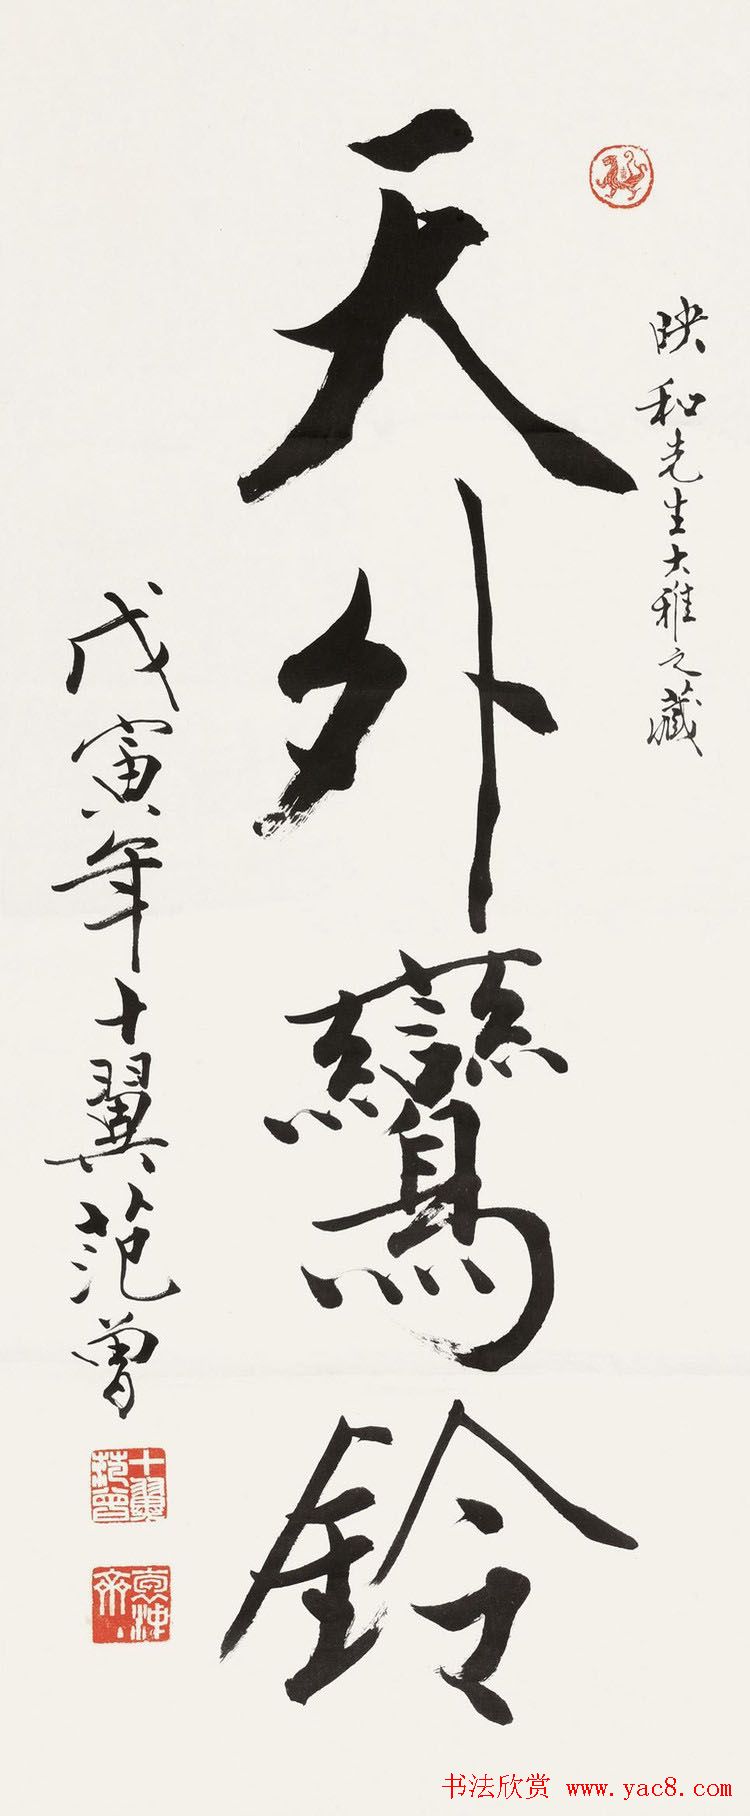 映和先生大雅之藏
天外鸞鈴
戊寅年十翼范曾
十翼范曾
书法欣赏 www.yac8.com